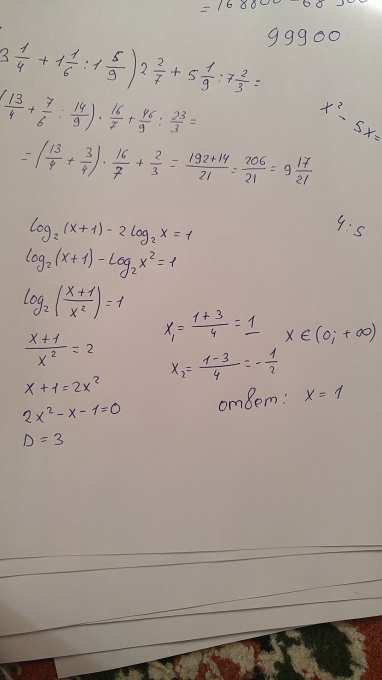 = 168800 - 68
99900
3 1/4 + 1 1/6 : 1 5/9) 2 2/7 + 5 1/9 : 7 2/3 =
(13/4 + 7/6 : 14/9) · 16/7 + 46/9 : 23/3 =
= (13/4 + 3/4) · 16/7 + 2/3 = 192+14/21 = 206/21 = 9 17/21
x² - 5x =
4:5
log₂(x+1) - 2log₂x = 1
log₂(x+1) - log₂x² = 1
log₂(x+1/x²) = 1
x+1/x² = 2
x+1 = 2x²
2x² - x - 1 = 0
D = 3
x₁ = 1+3/4 = 1
x₂ = 1-3/4 = -1/2
x ∈ (0; +∞)
ответ: x = 1